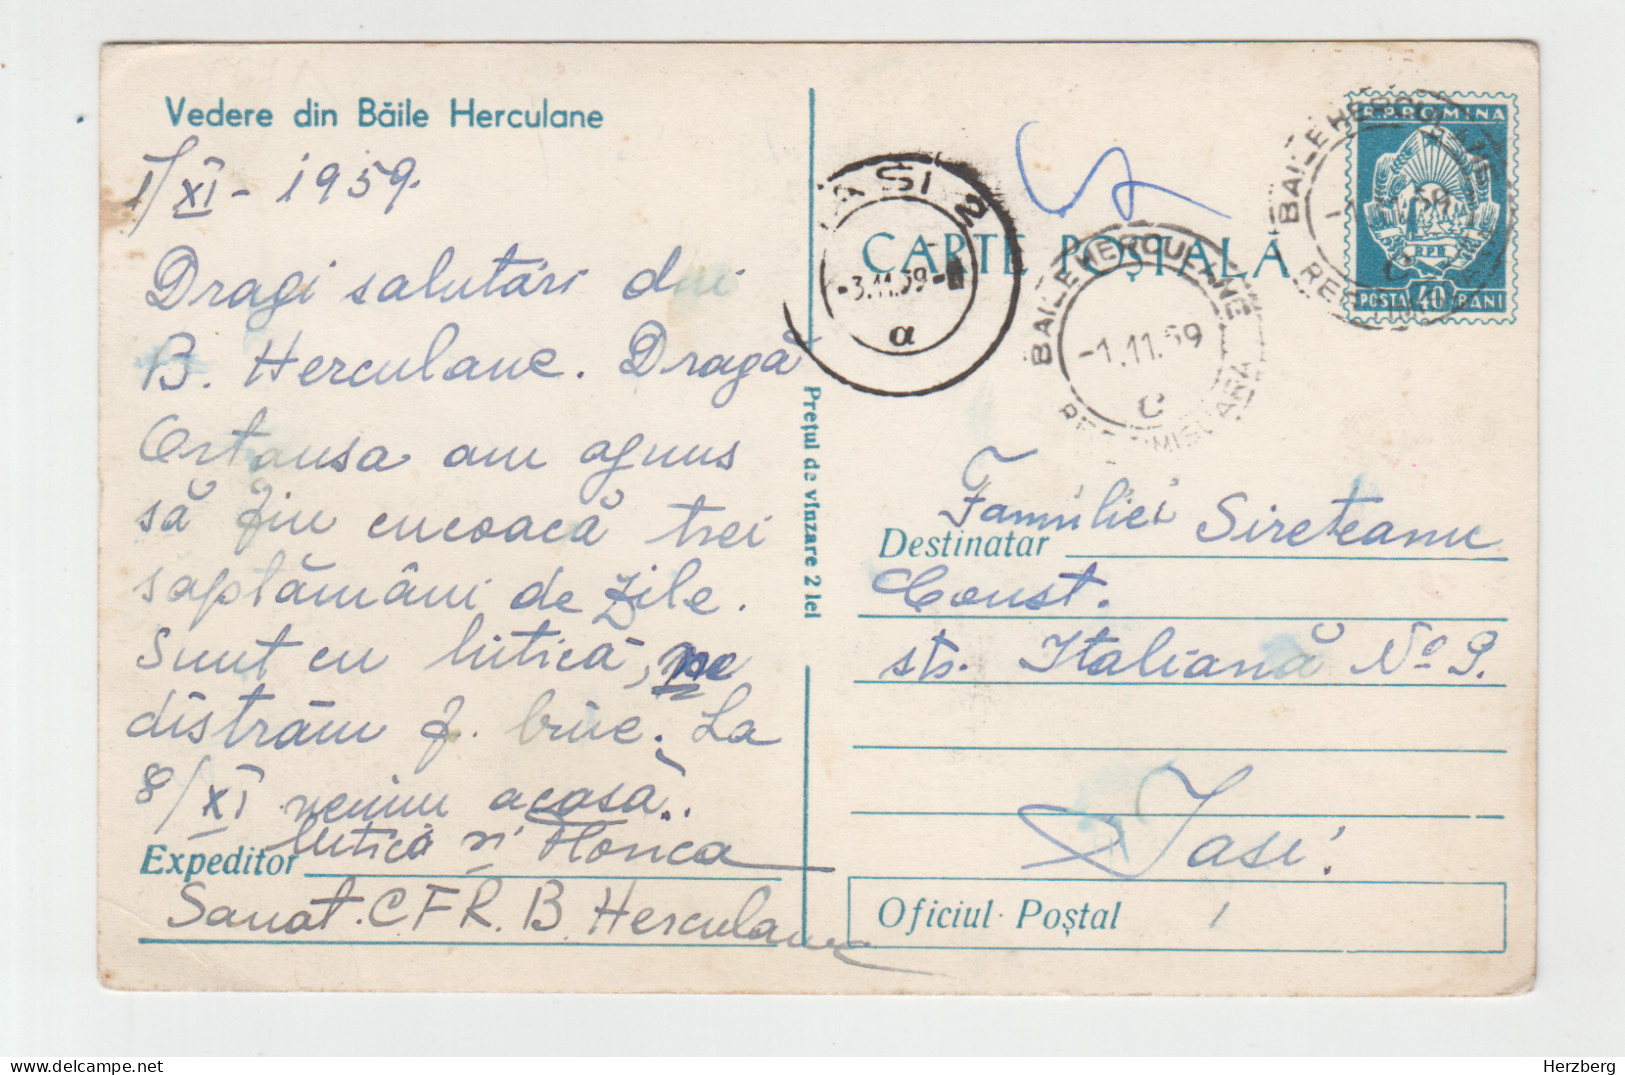 Vedere din Băile Herculane
1/XI - 1959.
Dragi salutări din
B. Herculane. Dragă
Ortansa am ajuns
să fiu encoacă trei
saptămâni de zile.
Sunt cu Mitică, ne
distrăm f. bine. La
8/XI venim acasă.
Mitică și Florica
Expeditor
Sanat. C.F.R. B. Herculane
Prețul de vînzare 2 lei
IAȘI 2
-3.11.59-
a
CARTE POȘTALA
BAILE HERCULANE
-1.11.59
C
REG. TIMISOARA
R.P.ROMINA
RPR
POSTA 40 BANI
BAILE HERCULANE
C
REG. TIMISOARA
Familiei Sireteanu
Destinatar
Const.
str. Italiană No 9.
Iași
Oficiul Poștal
Herzberg